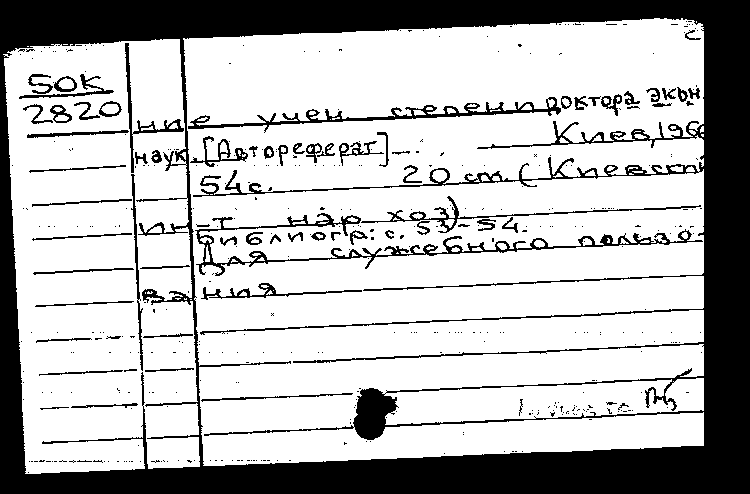 50К
2820
ние учен. степени доктора экон.
наук. [Автореферат] —. Киев, 196
54 с. 20 см. (Киевский
ин-т нар хоз)
Библиогр: с. 53-54.
Для служебного пользо-
вания